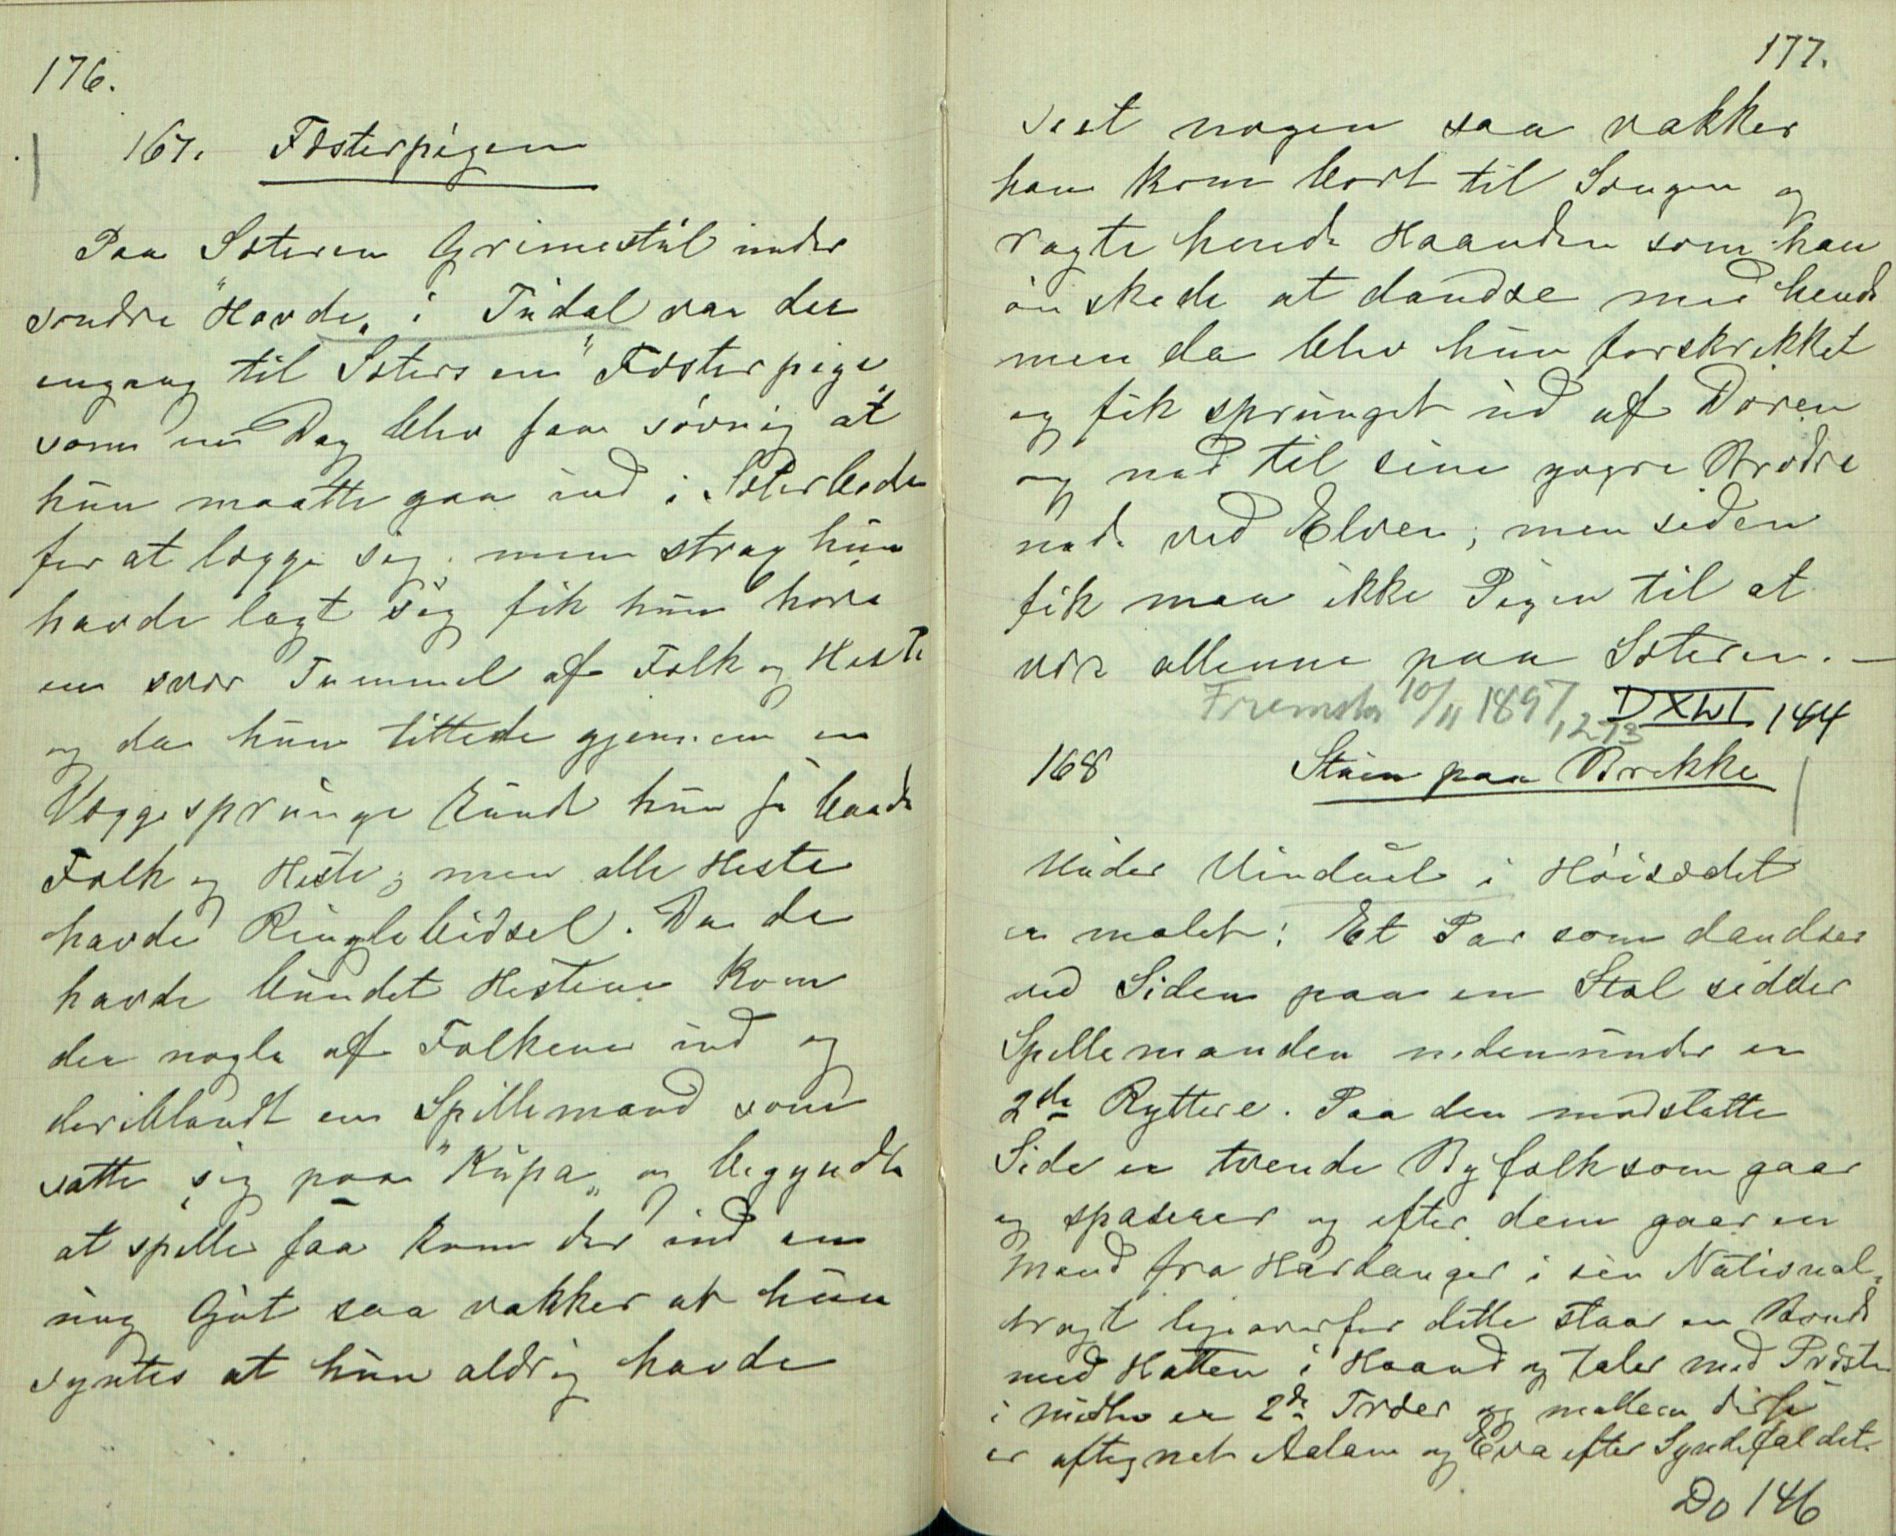 176.
167. Fæsterpigen
Paa Sæteren Grimestúl under
søndre "Hovde„ i Túdal var der
engang til Sæters en "Fæsterpige„
som en Dag blev saa søvnig at
hún maatte gaa ind i Sæterboden
for at lægge sig, men strax hún
havde lagt sig fik hún høre
en svær Tummel af Folk og Heste
og da hún tittede gjennem en
Væggesprúnge kúnde hún se baade
Folk og Heste; men alle Heste
havde Ringlebidsel. Da de
havde búndet Hestene kom
der nogle af Folkene ind og
deriblandt en Spillemand som
satte sig paa "Kúpa„ og begyndte
at spille saa kom der ind en
úng Gút saa vakker at hún
syntes at hún aldrig havde
177.
seet nogen saa vakker
han kom bort til Sengen og
ragte hende Haanden som han
ønskede at dandse med hende
men da blev hún forskrikket
og fik sprúnget úd af Døren
og ned til sine yngre Brødre
nede ved Elven; men siden
fik man ikke Pigen til at
være allene paa Sæteren. —
Fremsta 10/11 1897, 1273 DXLVI 144
168 Stúen paa Brekke
Únder Vindúet i Høisædet
er malet: Et Par som dandser
ved Siden paa en Stol sidder
Spillemanden nedenúnder er
2de Ryttere. Paa den modsatte
Side er tvende Byfolk som gaar
og spaserer og efter dem gaar en
Mand fra Hardanger i sin National-
dragt ligeoverfor dette staar en Bonde
med Hatten i Haand og taler med Præsten
i midten er 2de Træer og mellem disse
er aftegnet Adam og Eva efter Syndefaldet.
Do 146